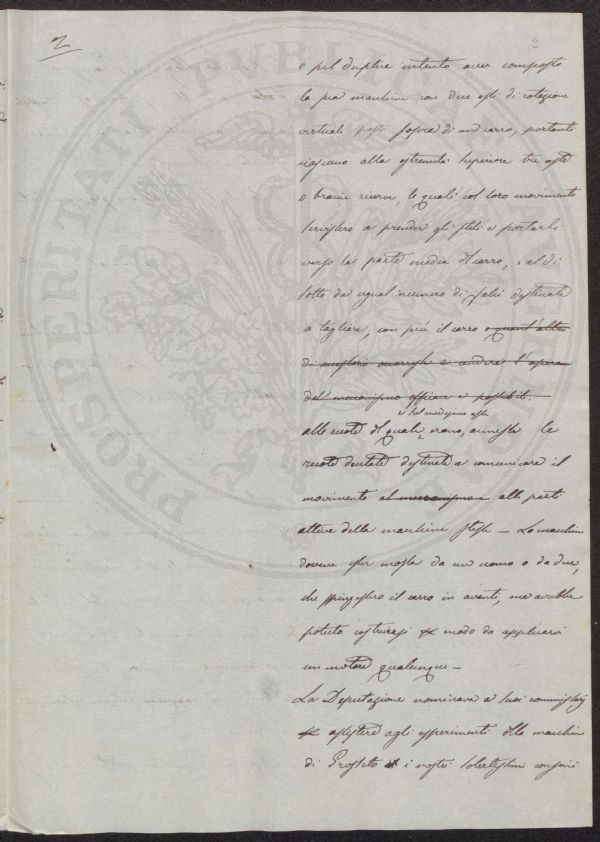 2
2
e pel duplice intento aver composto
la sua macchina con due assi di rotazione
virtuali posti sopra di un carro, portanti
ciascuno alla estremità superiore tre aste
o braccia ricurve, le quali col loro movimento
servissero a prender gli steli e portarli
verso la parte media del carro, e al di
sotto da ugual numero di falci destinate
a tagliare, con più il carro o quant'altro
di accessorio occorresse a rendere l'opera
del meccanismo efficace e possibile.
e sul medesimo asse
alle ruote del quale, erano annesse le
ruote dentate destinate a comunicare il
movimento al meccanismo alle parti
attive della macchina stessa — La macchina
doveva esser mossa da un uomo o da due,
che spingessero il carro in avanti, ma avrebbe
potuto costruirsi in modo da applicarvi
un motore qualunque —
La Deputazione nominava a suoi commissarj
per assistere agli esperimenti della macchina
di Grosseto i nostri solertissimi